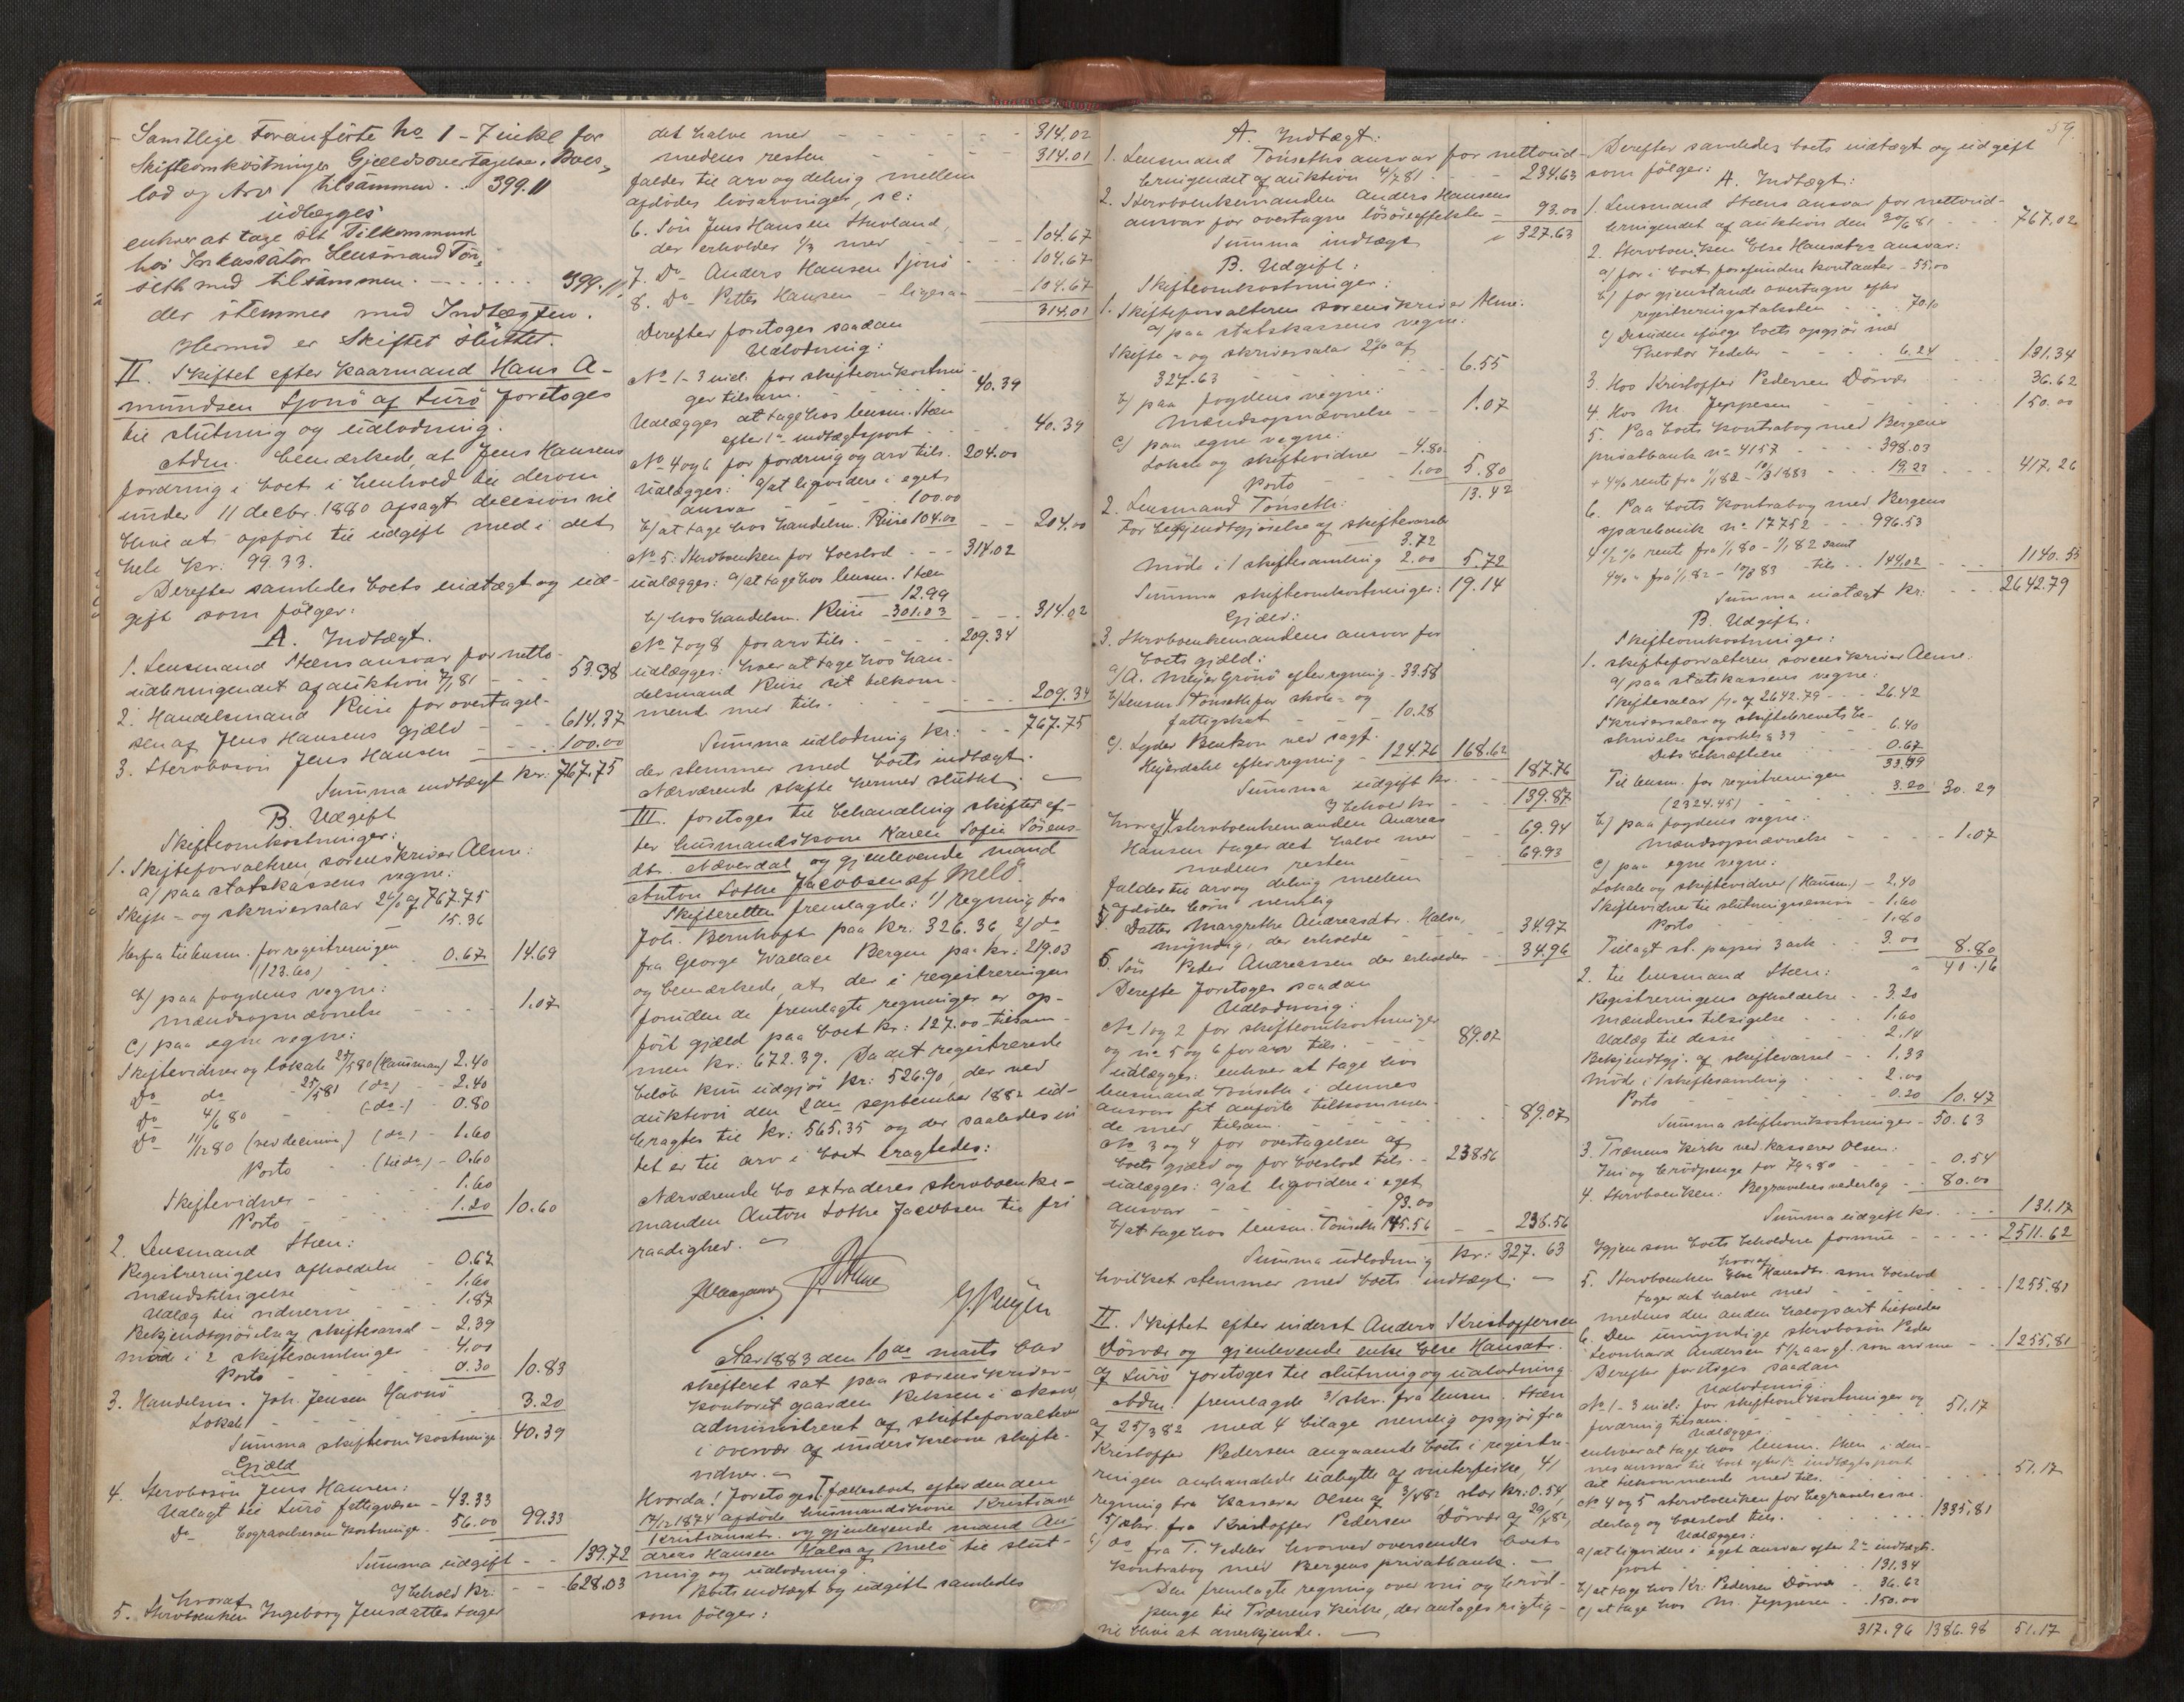 Samtlige Foranførte No 1 - 7 inkl for
Skifteomkostninger, Gjældsovertagelse, Boes-
lod og Arv tilsammen . . 399.11
udlægges
enhver at tage sit Tilkommende
hos Inkassator Lensmand Tøn-
seth med tilsammen . - - - . . . 399.11
der stemmer med Indtægten.
Hermed er Skiftet sluttet.
II. Skiftet efter Kaarmand Hans A-
mundsen Sjonø af Lurø foretoges
til slutning og udlodning.
Adm. bemærkede, at Jens Hansens
fordring i boet i henhold til derom
under 11 decbr. 1880 afsagt decision vil
blive at opføre til udgift med i det
hele kr. 99.33.
Derefter samledes boets indtægt og ud-
gift som følger:
A. Indtægt.
1. Lensmand Stens ansvar for netto-
udbringendet af auktion 7/7 81 - - 53.38
2. Handelsmand Riise for overtagel-
sen af Jens Hansens gjæld - - - 614.37
3. Stervbosøn Jens Hansen - - - 100.00
Summa indtægt Kr: 767.75
B. Udgift
Skifteomkostninger:
1. Skifteforvalteren, sorenskriver Alme:
a) paa statskassens vegne:
Skifte- og skriversalar 2% af 767.75
15.36
Herfra til lensm. for registreringen
(123.60) 0.67 14.69
b) paa fogdens vegne:
mændsopnævnelse - - - - 1.07
c) paa egne vegne:
Skiftevidner og lokale 25/5 80 (Hansman) 2.40
Do do 25/5 81 (do) - 2.40
Do 4/6 80 (do) - 0.80
Do 11/12 80 (ved decision) (do) - 1.60
Porto - - (til do) - 0.60
Skiftevidner - - - - 1.60
Porto - - - 1.20 10.60
2. Lensmand Sten:
Registreringens afholdelse - 0.67
mændstilsigelse - - 1.60
Udlæg til vidnerne - 1.87
Bekjendtgjørelse af skiftevarsel - 2.39
møde i 2 skiftesamlinger - 4.00
Porto - - - 0.30 10.83
3. Handelsm. Joh. Jensen Havnø
Lokale - - - 3.20
Summa skifteomkostninger 40.39
Gjæld
4. Stervbosøn Jens Hansen:
Udlagt til Lurø fattigvæsen - 43.33
Do begravelsesomkostninger - 56.00 99.33
Summa udgift - - 139.72
I behold kr: - - 628.03
hvoraf
5. Stervboenken Ingeborg Jensdatter tager
det halve med - - - - - 314.02
medens resten - - - - 314.01
falder til arv og deling mellem
afdødes livsarvinger, sc:
6. Søn Jens Hansen Stuvland,
der erholder 1/3 med - - - 104.67
7. Do Anders Hansen Sjonø - - 104.67
8. Do Petter Hansen - ligesaa - 104.67
314.01
Derefter foretoges saadan
Udlodning:
No 1 - 3 incl. for skifteomkostnin-
ger tilsam. - - - 40.39
Udlægges at tage hos lensm. Sten
efter 1ste indtægtspost - - - 40.39
No 4 og 6 for fordring og arv tils. 204.00
Udlægges: a) at ligvidere i eget
ansvar - - - 100.00
b) at tage hos handelsm. Riise 104.00 - - 204.00
No 5: Stervboenken for boeslod - - - 314.02
udlægges: a) at tage hos lensm. Sten
12.99
b) hos handelsm. Riise - 301.03 - - - 314.02
No 7 og 8 for arv tils. - - - 209.34
udlægges: hver at tage hos han-
delsmand Riise sit tilkom-
mende med tils. - - - - 209.34
Summa udlodning Kr: - - 767.75
der stemmer med boets indtægt.
Nærværende skifte hermed sluttet.
III. foretoges til behandling skiftet ef-
ter husmandskone Karen Sofie Sørens-
dtr. Næverdal og gjenlevende mand
Anton Lothe Jacobsen af Melø.
Skifteretten fremlagde: 1) regning fra
Joh. Bernhoft paa Kr. 326.36, 2) do
fra George Wallace Bergen paa Kr: 219.03
og bemærkede, at der i registreringen
foruden de fremlagte regninger er op-
ført gjæld paa boet Kr: 127.00 - tilsam-
men kr. 672.39. Da det registrerede
beløb kun udgjør kr: 526.90, der ved
auktion den 2den september 1882 ud-
bragtes til Kr: 565.35 og der saaledes in-
tet er til arv i boet eragtedes:
Nærværende bo extraderes stervboenke-
manden Anton Lothe Jacobsen til fri
raadighed.
Aar 1883 den 10de marts blev
skifteret sat paa sorenskriver-
kontoret gaarden
administreret af skifteforvalteren
i overvær af underskrevne skifte-
vidner.
Hvorda! foretoges: I. fællesboet efter den den
17/12 1874 afdøde husmandskone Kristiane
Kristiansdtr. og gjenlevende mand An-
dreas Hansen Halsa af Melø til slut-
ning og udlodning.
Boets indtægt og udgift samledes
som følger:
59.
A. Indtægt:
1. Lensmand Tønseths ansvar for nettoud-
bringendet af auktion 4/7 81 - - - - 234.63
2. Stervboenkemanden Anders Hansens
ansvar for overtagne løsøreeffekter - 93.00
Summa indtægt " 327.63
B. Udgift:
Skifteomkostninger:
1. Skifteforvalteren sorenskriver Alme:
a) paa statskassens vegne:
Skifte- og skriversalar 2% af
327.63 - - - - 6.55
b) paa fogdens vegne:
Mændsopnævnelse - - 1.07
c) paa egne vegne:
Lokale og skiftevidner - 4.80
Porto - - - 1.00 5.80
13.42
2. Lensmand Tønseth:
For bekjendtgjørelse af skiftevarsel
3.72
Møde i 1 skiftesamling 2.00 5.72
Summa skifteomkostninger: 19.14
Gjæld:
3. Stervboenkemandens ansvar for
boets gjæld:
a) A. Meyer Grønø efter regning - 33.58
b) Lensm. Tønseth for skole- og
fattigskat - - - 10.28
c) Lyder Bentson ved sagf.
Heyerdahl efter regning - 124.76 168.62
Summa udgift kr. - - 187.76
I behold kr - - - 139.87
hvoraf 4 stervboenkemanden Andreas
Hansen tager det halve med - - 69.94
medens resten - - 69.93
falder til arv og deling mellem
afdødes børn nemlig
5. Datter Margrethe Andreasdtr. Halsa,
myndig, der erholder - - - 34.97
6. Søn Peder Andreassen der erholder - - 34.96
Derefter foretoges saadan
Udlodning:
No 1 og 2 for skifteomkostninger
og no 5 og 6 for arv tils. - - - 89.07
udlægges: enhver at tage hos
lensmand Tønseth i dennes
ansvar sit anførte tilkommen-
de med tilsam. - - - - - 89.07
No 3 og 4 for overtagelsen af
boets gjæld og for boeslod tils. - - 238.56
udlægges: a) at ligvidere i eget
ansvar - - - 93.00
b) at tage hos lensm. Tønseth 145.56 - - 238.56
Summa udlodning Kr: 327.63
hvilket stemmer med boets indtægt.
II. Skiftet efter inderst Anders Kristoffersen
Dørvær og gjenlevende enke Else Hansdtr.
af Lurø foretoges til slutning og udlodning
Adm. fremlagde 3/ skr. fra lensm. Sten
af 25/3 82 med 4 bilage nemlig opgjør fra
Kristoffer Pedersen angaaende boets i registre-
ringen omhandlede udbytte af vinterfiske, 4)
regning fra kasserer Olsen af 3/8 82 stor kr: 0.54,
5) skr. fra Kristoffer Pedersen Dørvær af 29/1 82,
6) do fra T. Vedeler hvorved oversendes boets
kontrabog med Bergens privatbank.
Den fremlagte regning over vin og brød-
penge til Trænens kirke, der antages rigtig -
vil blive at anerkjende.
Derefter samledes boets indtægt og udgift
som følger:
A. Indtægt:
1. Lensmand Stens ansvar for nettoud-
bringendet af auktion den 30/6 81 - - 767.02
2. Stervboenken Else Hansdtrs ansvar:
a) for i boet forefundne kontanter - 55.00
b) for gjenstande overtagne efter
registreringstaksten - - - 70.10
c) Desuden ifølge boets opgjør med
Theodor Vedeler - - - - 6.24 - - 131.34
3. Hos Kristoffer Pedersen Dørvær - - - 36.62
4. Hos M. Jeppesen - - - - 150.00
5. Paa boets kontrabog med Bergens
privatbank no 4157 - - - - 398.03
+ 4% rente fra 1/1 82 - 10/3 1883 - - - 19.23 - - 417.26
6. Paa boets kontrabog med Bergens
sparebank no 17752 - - - 996.53
4 1/2 % rente fra 1/1 80 - 1/1 82 samt
4% " fra 1/1 82 - 10/3 83 - tils - - 144.02 - - 1140.55
Summa indtægt kr: - - - 2642.79
B. Udgift:
Skifteomkostninger:
1. skifteforvalteren, sorenskriver Alme:
a) paa statskassens vegne:
Skiftesalar 1% af 2642.79 - - - 26.42
Skriversalar og skiftebrevets be-
skrivelse sportler § 39 - 6.40
Dets bekræftelse - - 0.67
33.49
Til lensm. for registreringen
(2324.45) - - - - - 3.20 30.29
b) paa fogdens vegne:
mændsopnævnelse - - - - 1.07
c) paa egne vegne:
Lokale og skiftevidner (Hansm.) - 2.40
Skiftevidner til slutningssession - 1.60
Porto - - - - 1.80
Tillagt st. papir 3 ark - - 3.00 8.80
" 40.16
2. til lensmand Sten:
Registreringens afholdelse - - 3.20
mændenes tilsigelse - - - 1.60
Udlæg til desse - - - 2.14
Bekjendtgj. af skiftevarsel - - 1.33
Møde i 1 skiftesamling - - - 2.00
Porto - - - - 0.20 10.47
Summa skifteomkostninger - 50.63
3. Trænens kirke ved kasserer Olsen:
Vin og brødpenge for 79 & 80 - - - 0.54
4. Stervboenken: Begravelsesvederlag - - 80.00
Summa udgift kr. - - - 131.17
Igjen som boets beholdne formue - - - - 2511.62
hvoraf
5. Stervboenken Else Hansdtr. som boeslod
tager det halve med - - - - - 1255.81
medens den anden halvpart tilfalder
6. Den umyndige stervbosøn Peder
Leonhard Andersen 5 1/2 aar gl. som arv med - - 1255,81
Derefter foretoges saadan
Udlodning:
No 1 - 3 incl. for skifteomkostninger og
fordring tilsam. - - - - - 51.17
Udlægges:
enhver at tage hos lensm. Sten i den-
nes ansvar til boet efter 1ste indtægtspost
sit tilkommende med tils. - - - - 51.17
No 4 og 5 stervboenken for begravelsesve-
derlag og boeslod tils. - - - - 1335,81
Udlægges:
a) at ligvidere i eget ansvar efter 2den indtægts-
post - - - - 131.34
b) at tage hos Kr: Pedersen Dørvær - 36.62
c) at tage hos M. Jeppesen - - 150.00
317.96 1386.98 51.17